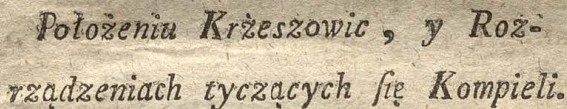 Położeniu Krżeszowic, y Roz-
rządzeniach tyczących ſię Kompieli.